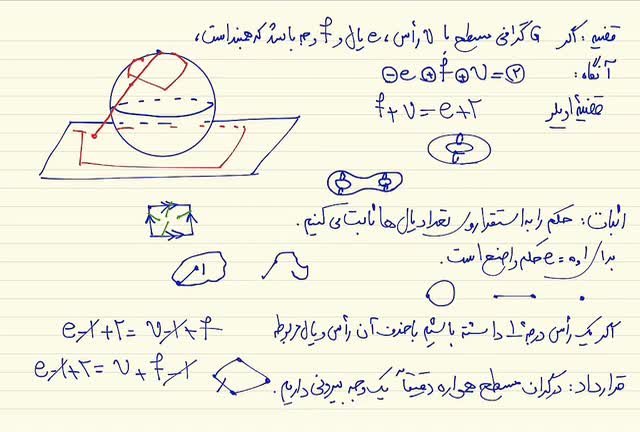 قضیه: اگر G گرافی مسطح با v رأس، e یال و f وجه باشد که همبند است،
آنگاه: -e + f + v = ۲
قضیهٔ اویلر f + v = e + ۲
اثبات: حکم را به استقرا روی تعداد یال‌ها ثابت می‌کنیم.
برای e = ۰ و ۱ حکم واضح است.
اگر یک رأس درجهٔ ۱ داشته باشیم با حذف آن رأس و یال مربوطه e-1+۲ = v-1+f
e-1+۲ = v+f-1
قرارداد: در گراف مسطح همواره دقیقاً یک وجه بیرونی داریم.